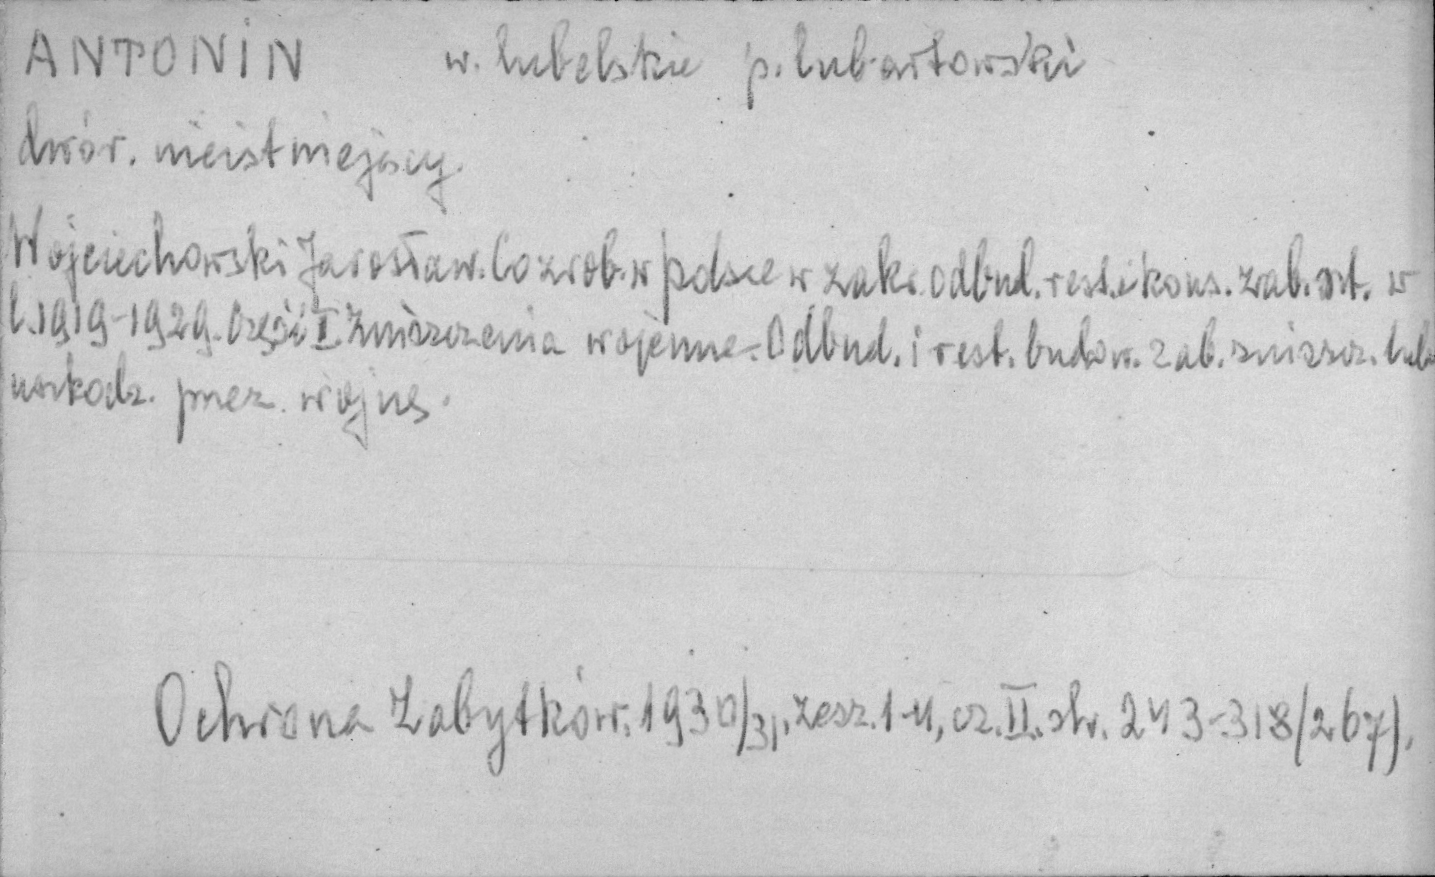 ANTONIN w. lubelskie p. lubartowski
dwór. nieistniejący.
Wojciechowski Jarosław. Co zrob. w Polsce w zakr. odbud. rest. i kons. zab. szt. w
l. 1919-1929. Część I. Zniszczenia wojenne. Odbud. i rest. budow. zab. zniszcz. lub
uszkodz. przez wojnę.
Ochrona Zabytków. 1930/31, zesz. 1-4, cz. II. str. 243-318/267).